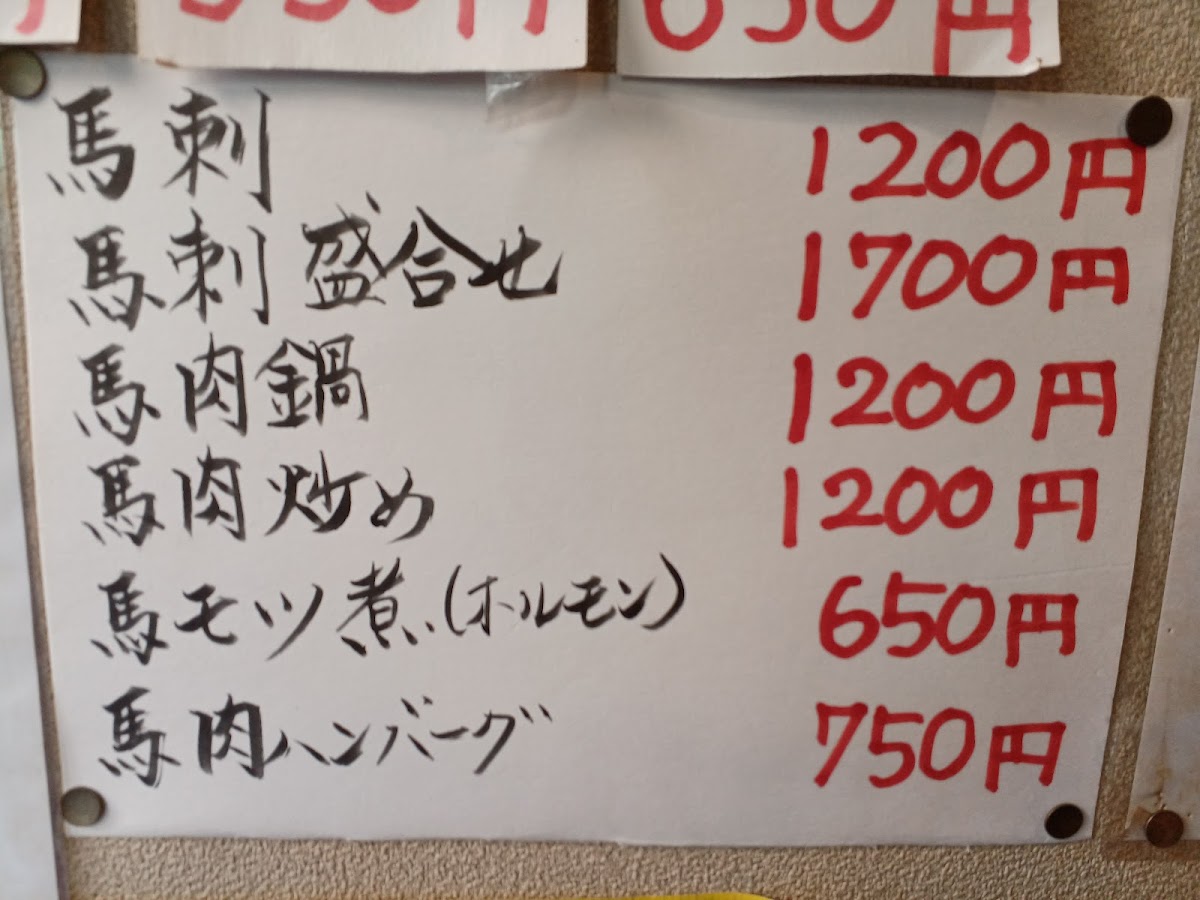 650円
馬刺 1200円
馬刺盛合せ 1700円
馬肉鍋 1200円
馬肉炒め 1200円
馬モツ煮(ホルモン) 650円
馬肉ハンバーグ 750円